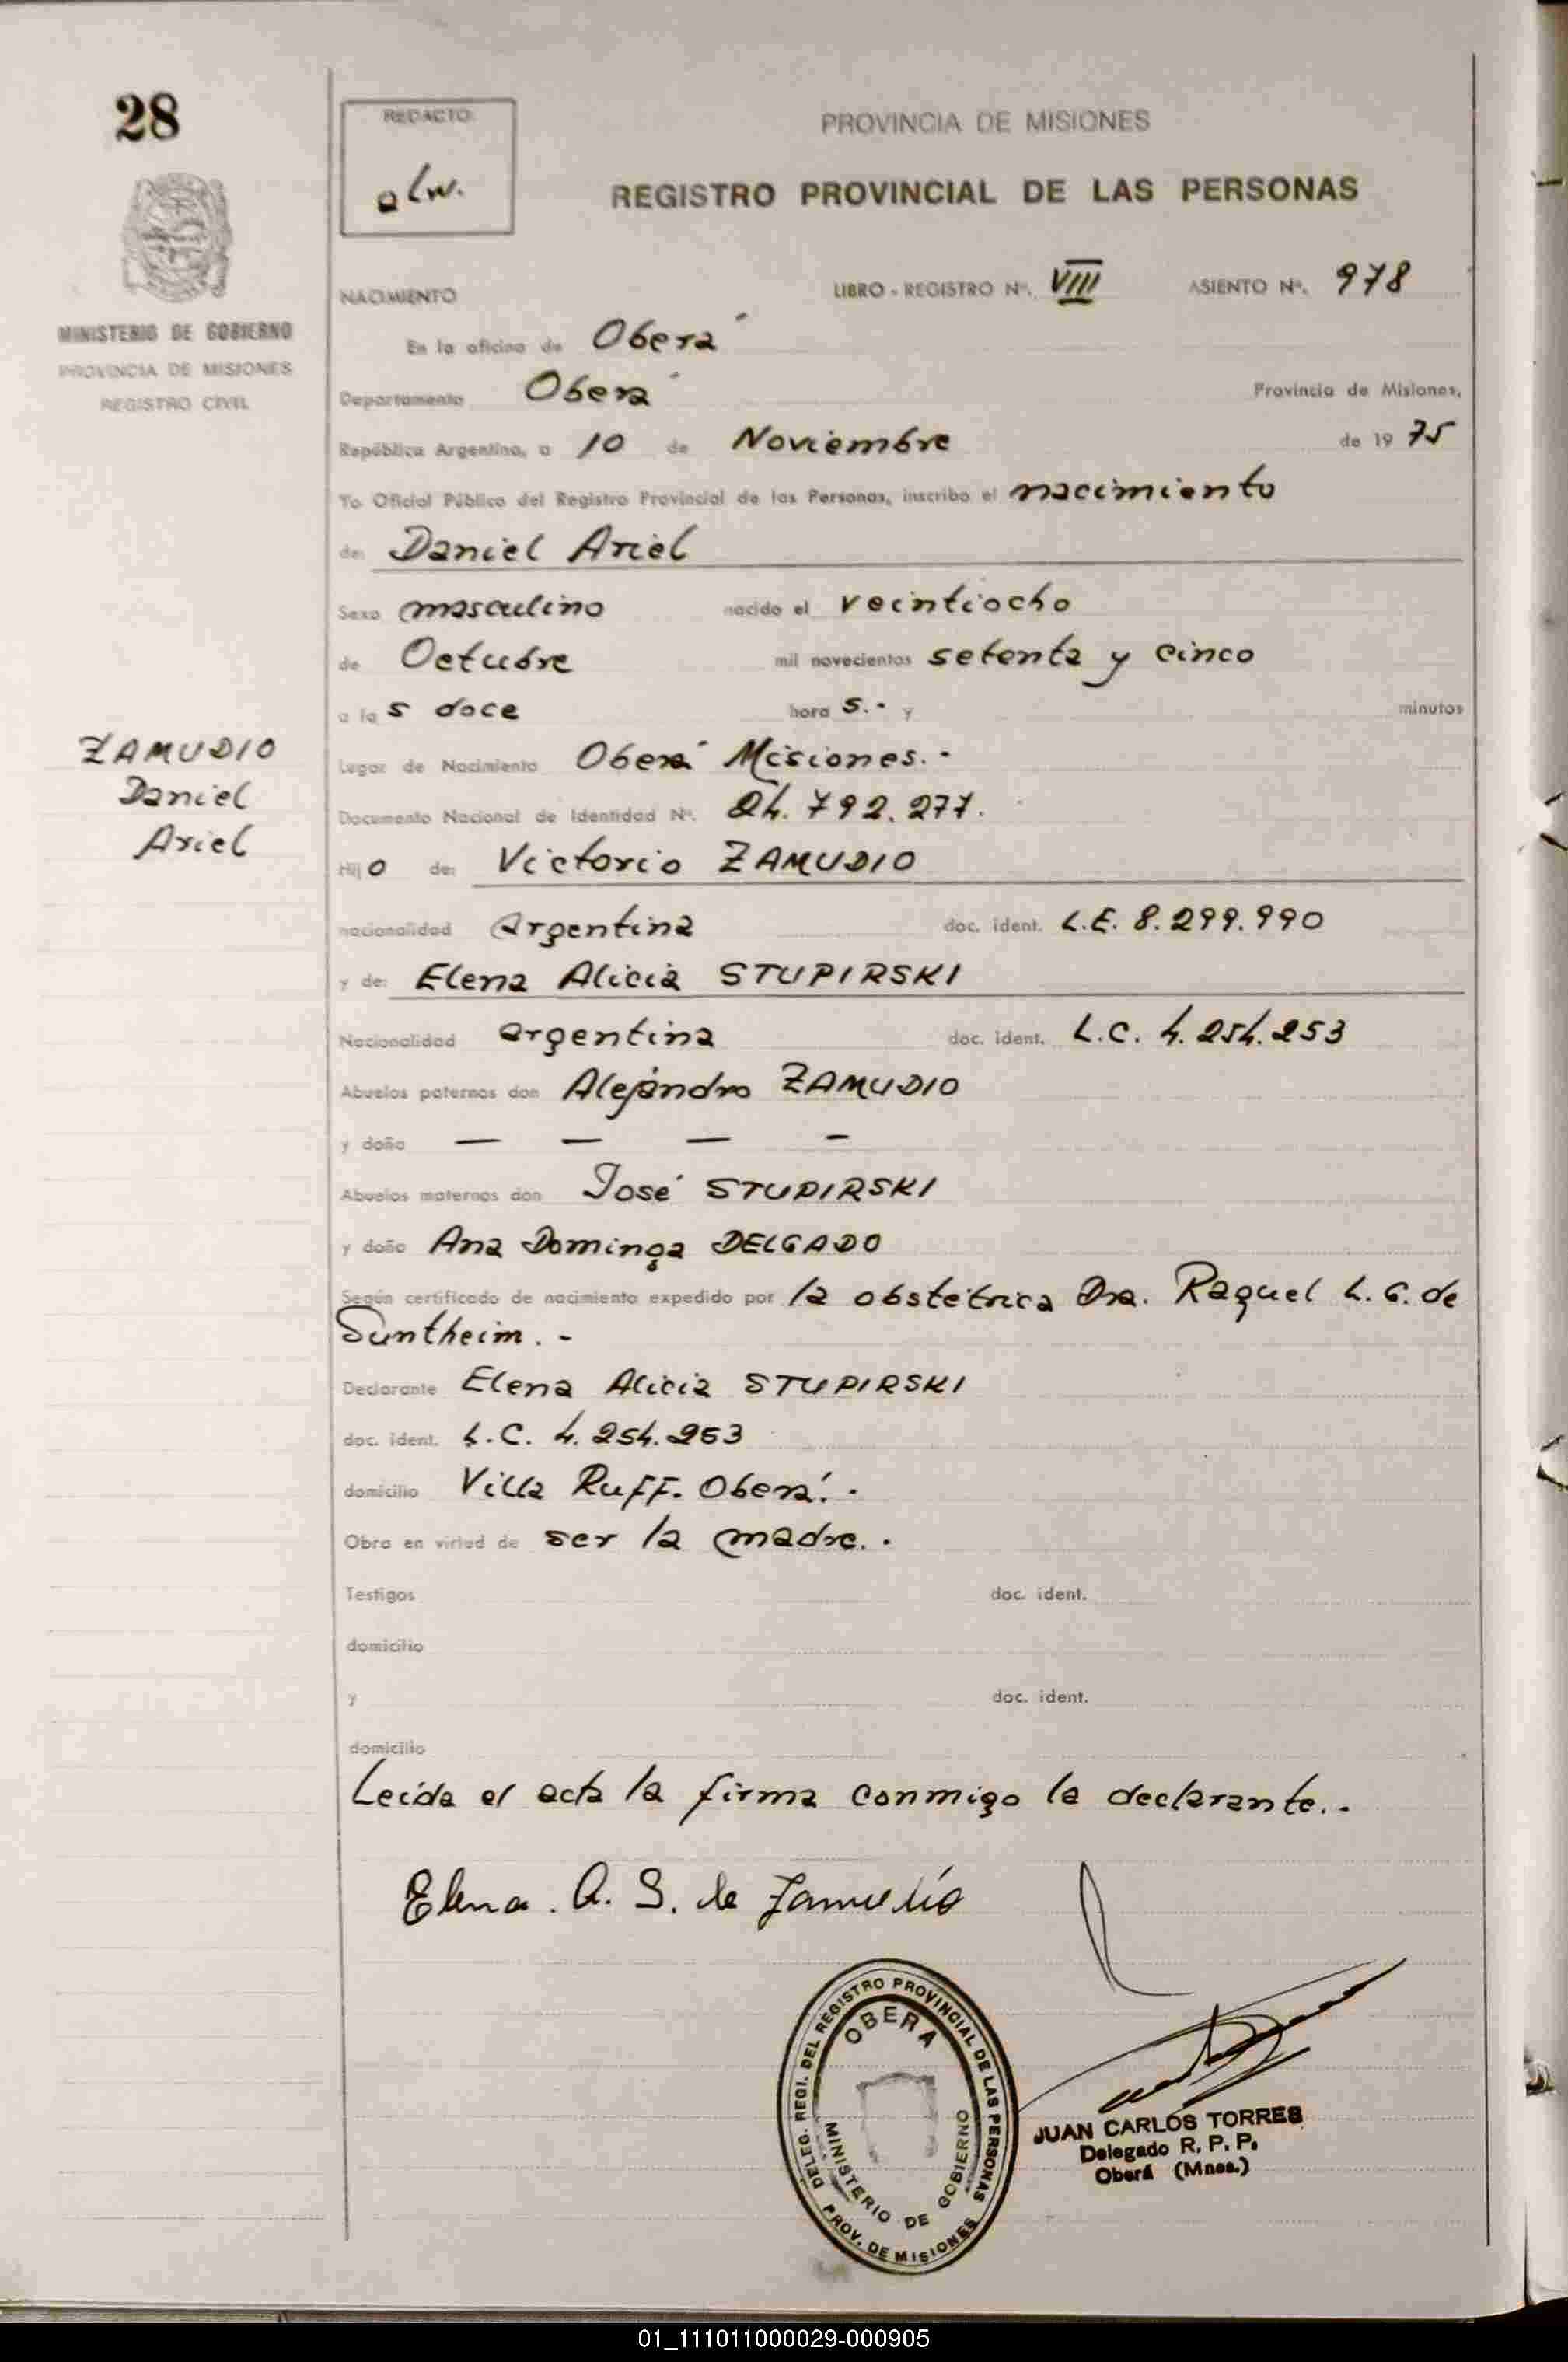 28
REDACTO
alw.
PROVINCIA DE MISIONES
REGISTRO PROVINCIAL DE LAS PERSONAS
MINISTERIO DE GOBIERNO
PROVINCIA DE MISIONES
REGISTRO CIVIL
NACIMIENTO LIBRO - REGISTRO Nº. VIII ASIENTO Nº. 978
En la oficina de Oberá
Departamento Oberá Provincia de Misiones,
República Argentina, a 10 de Noviembre de 19 75
Yo Oficial Público del Registro Provincial de las Personas, inscribo el nacimiento
de: Daniel Ariel
Sexo masculino nacido el veintiocho
de Octubre mil novecientos setenta y cinco
a las doce hora s.- y minutos
ZAMUDIO
Daniel
Ariel
Lugar de Nacimiento Oberá Misiones.-
Documento Nacional de Identidad Nº. 24.792.277.
Hijo de: Victorio ZAMUDIO
nacionalidad Argentina doc. ident. L.E. 8.299.990
y de: Elena Alicia STUPIRSKI
Nacionalidad argentina doc. ident. L.C. 4.254.253
Abuelos paternos don Alejandro ZAMUDIO
y doña — — — -
Abuelos maternos don José STUPIRSKI
y doña Ana Dominga DELGADO
Según certificado de nacimiento expedido por la obstétrica Dra. Raquel L. G. de
Suntheim.-
Declarante Elena Alicia STUPIRSKI
doc. ident. L.C. 4.254.253
domicilio Villa Ruff. Oberá.-
Obra en virtud de ser la madre.-
Testigos doc. ident.
domicilio
y doc. ident.
domicilio
Leída el acta la firma conmigo la declarante.-
Elena. A. S. de Zamudio
DELEG. REGI. DEL REGISTRO PROVINCIAL DE LAS PERSONAS
OBERA
MINISTERIO DE GOBIERNO
PROV. DE MISIONES
JUAN CARLOS TORRES
Delegado R. P. P.
Oberá (Mnes.)
01_111011000029-000905